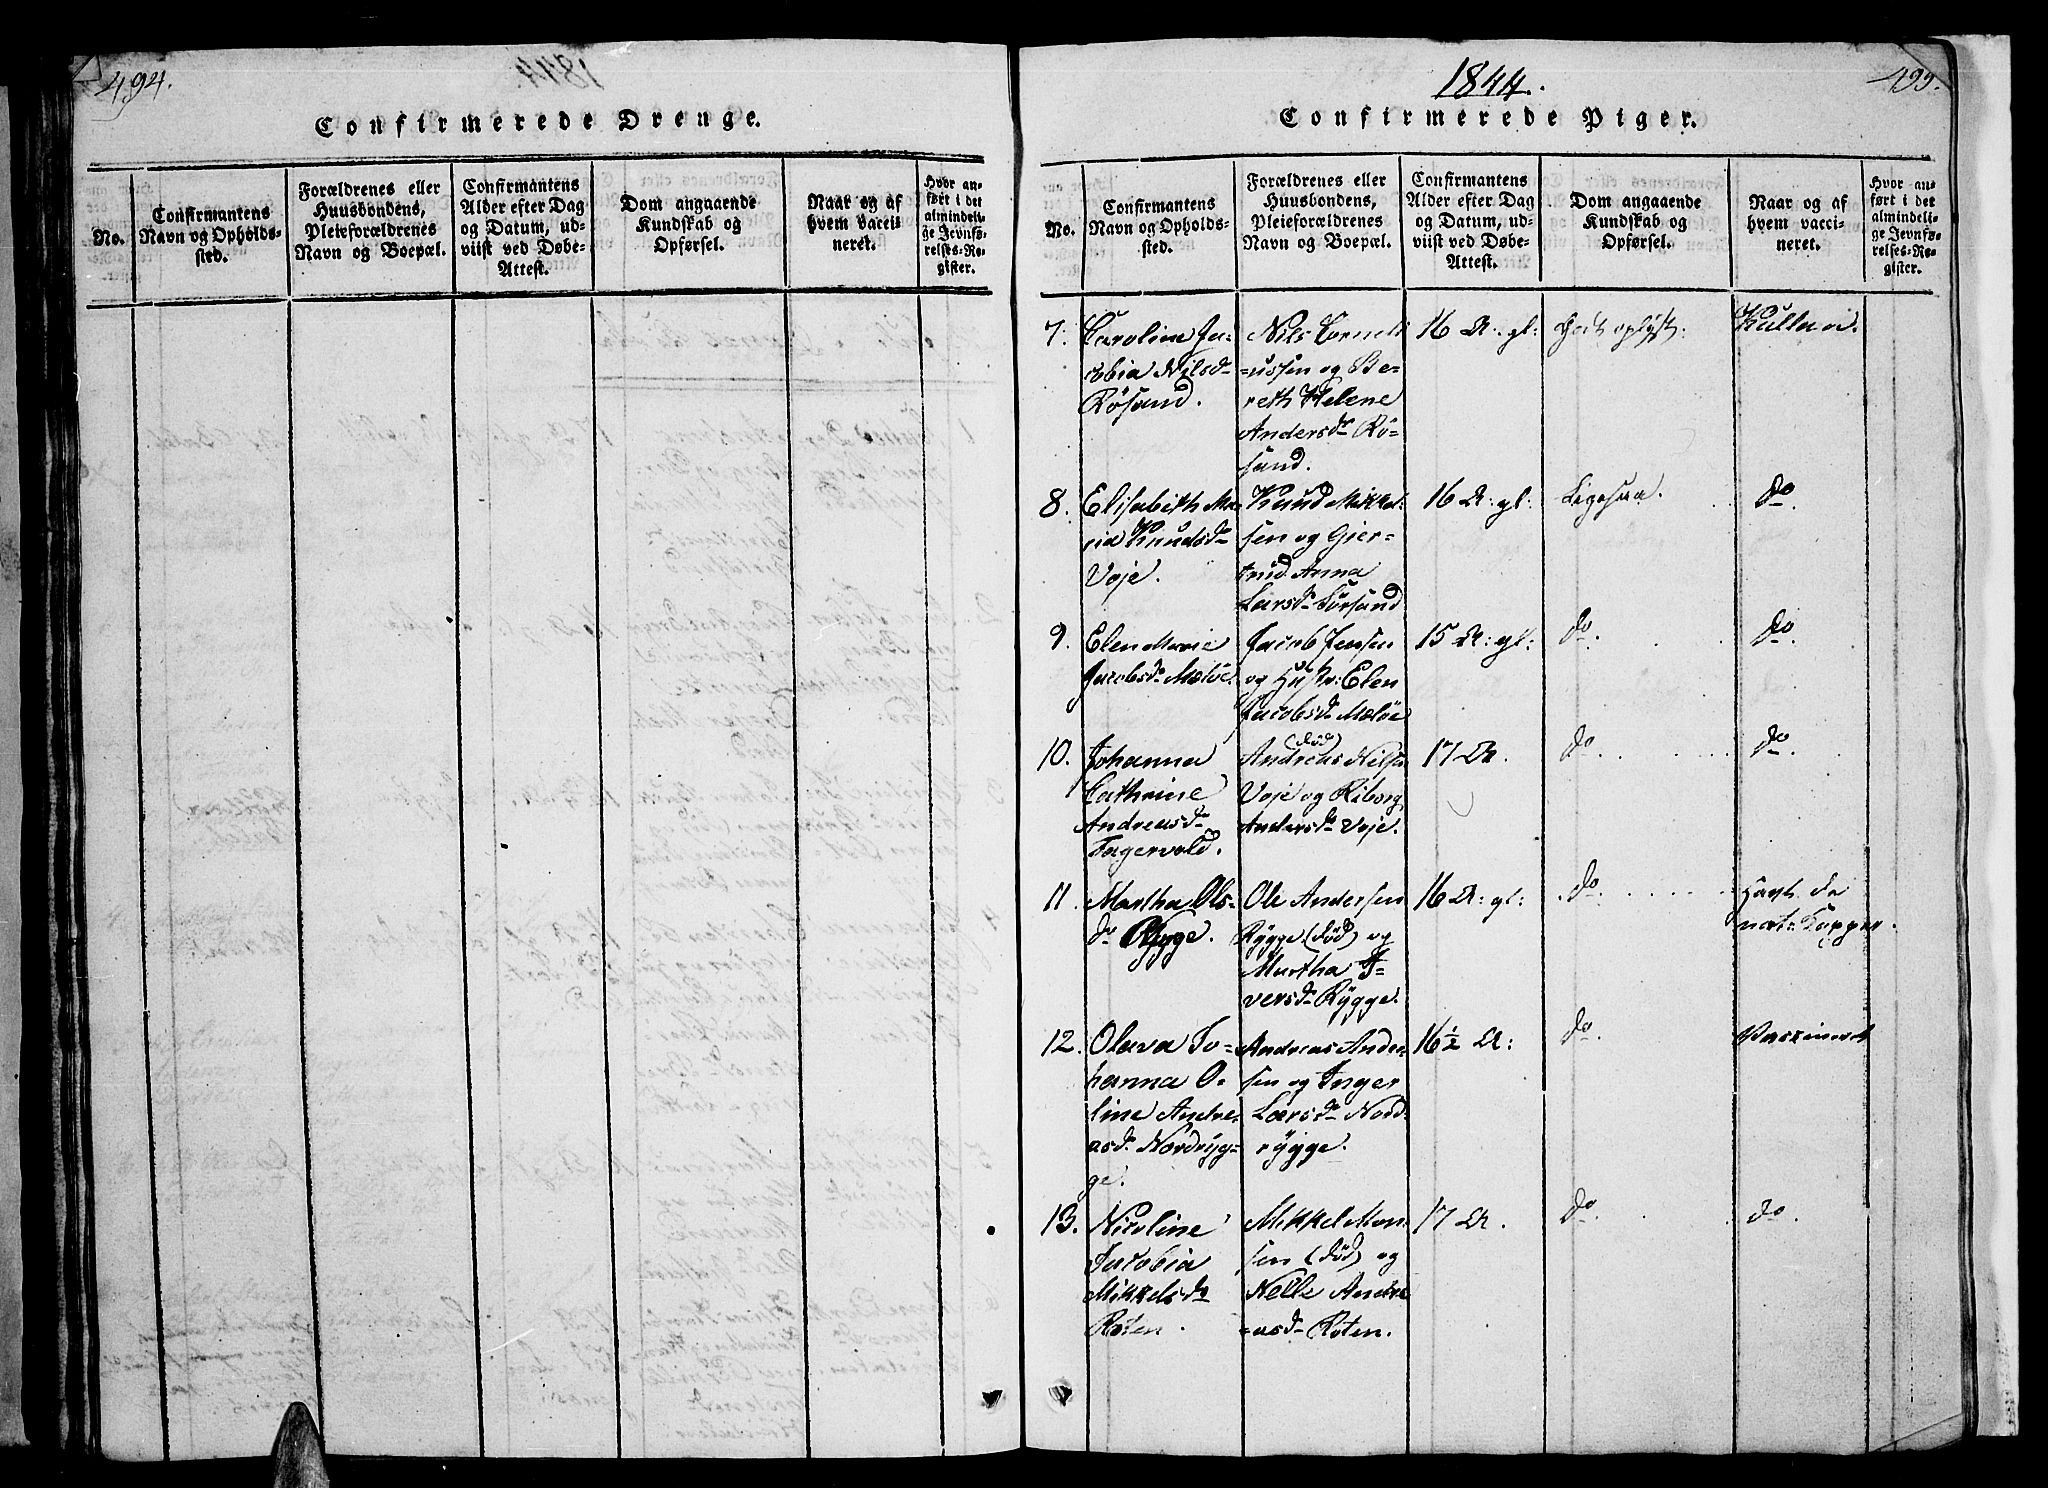 494.
Confirmerede Drenge.
No.
Confirmantens
Navn og Opholds-
sted.
Forældrenes eller
Huusbondens,
Pleieforældrenes
Navn og Boepæl.
Confirmantens
Alder efter Dag
og Datum, ud-
viist ved Døbe-
Attest.
Dom angaaende
Kundskab og
Opførsel.
Naar og af
hvem vacci-
neret.
Hvor an-
ført i det
almindeli-
ge Jevnfø-
relses-Re-
gister.
1844.
495.
Confirmerede Piger.
No.
Confirmantens
Navn og Opholds-
sted.
Forældrenes eller
Huusbondens,
Pleieforældrenes
Navn og Boepæl.
Confirmantens
Alder efter Dag
og Datum, ud-
viist ved Døbe-
Attest.
Dom angaaende
Kundskab og
Opførsel.
Naar og af
hvem vacci-
neret.
Hvor an-
ført i det
almindeli-
ge Jevnfø-
relses-Re-
gister.
7.
Caroline Ja-
cobia Nilsd
Røsand.
Nils Corneli
=ussen og Be-
reth Helene
Andersd Rö-
sand.
16 A: gl:
Godt oplyst.
8.
Elisabeth Ma-
ria Knudsd
Voje.
Knud Mikkel-
sen og Gjer-
trud Anna
Larsd Sörsand
16 A: gl:
Ligesaa.
do.
9.
Elen Marie
Jacobsd Meløe.
Jacob Jensen
og Hustr: Elen
Jacobsd Meløe
15 A: gl:
do.
do.
10.
Johanna
Cathrine
Andreasd
Fagervold.
(död)
Andreas Nilsen
Voje og Riborg
Andersd Voje.
17 A.
do.
do.
11.
Martha Ols-
d Rygge.
Ole Andersen
Rÿgge (död) og
Martha I-
versd Rÿgge.
16 A: gl:
do.
Havt de
nat: Kopper.
12.
Olava Jo-
hanna O-
line Andre-
asd Nordryg-
ge.
Andreas Ander-
sen og Inger
Larsd Nord-
rÿgge.
16 ½ A:
do.
Vaccineret
13.
Nicoline
Jacobia
Mikkelsd
Roten.
Mikkel Mon-
sen (död) og
Nelle Andre
=asd Roten.
17 A.
do.
do.